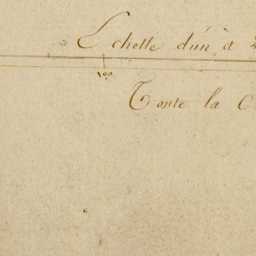 Echelle d'un à 2
100
Toute la C